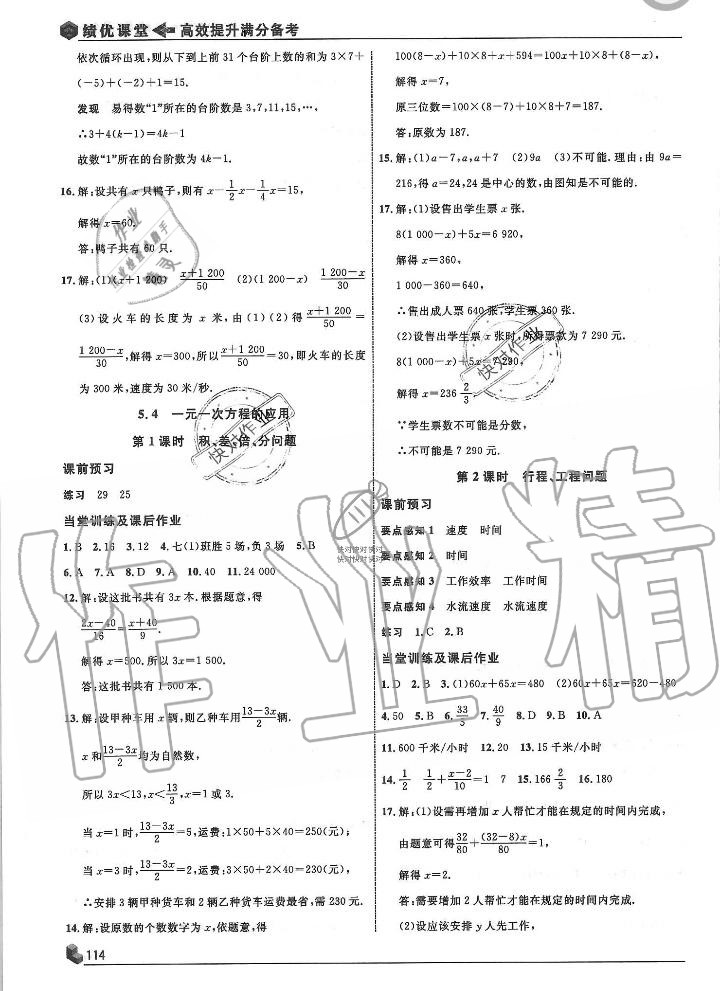 绩优课堂 高效提升满分备考
依次循环出现,则从下到上前31个台阶上数的和为3×7+
(-5)+(-2)+1=15.
发现 易得数“1”所在的台阶数是3,7,11,15,…,
∴3+4(k-1)=4k-1
故数“1”所在的台阶数为4k-1.
16.解:设共有x只鸭子,则有x-1/2x-1/4x=15,
解得x=60.
答:鸭子共有60只.
17.解:(1)(x+1 200) (x+1 200)/50 (2)(1 200-x) (1 200-x)/30
(3)设火车的长度为x米,由(1)(2)得(x+1 200)/50=
(1 200-x)/30,解得x=300,所以(x+1 200)/50=30,即火车的长度
为300米,速度为30米/秒.
5.4 一元一次方程的应用
第1课时 积、差、倍、分问题
课前预习
练习 29 25
当堂训练及课后作业
1.B 2.16 3.12 4.七(1)班胜5场,负3场 5.B
6.A 7.A 8.D 9.A 10.40 11.24 000
12.解:设这批书共有3x本.根据题意,得
(2x-40)/16=(x+40)/9.
解得x=500.所以3x=1 500.
答:这批书共有1 500本.
13.解:设甲种车用x辆,则乙种车用(13-3x)/2辆.
x和(13-3x)/2均为自然数,
所以3x<13,x<13/3,x=1或3.
当x=1时,(13-3x)/2=5,运费:1×50+5×40=250(元);
当x=3时,(13-3x)/2=2,运费:3×50+2×40=230(元),
∴安排3辆甲种货车和2辆乙种货车运费最省,需230元.
14.解:设原数的个数数字为x,依题意,得
114
100(8-x)+10×8+x+594=100x+10×8+(8-x),
解得x=7,
原三位数=100×(8-7)+10×8+7=187.
答:原数为187.
15.解:(1)a-7,a,a+7 (2)9a (3)不可能.理由:由9a=
216,得a=24,24是中心的数,由图知是不可能的.
17.解:(1)设售出学生票x张.
8(1 000-x)+5x=6 920,
解得x=360,
1 000-360=640;
∴售出成人票640张,学生票360张.
(2)设售出学生票x张时,所得票款为7 290元.
8(1 000-x)+5x=7 290,
解得x=236 2/3,
∵学生票数不可能是分数,
∴不可能是7 290元.
第2课时 行程、工程问题
课前预习
要点感知1 速度 时间
要点感知2 时间
要点感知3 工作效率 工作时间
要点感知4 水流速度 水流速度
练习 1.C 2.B
当堂训练及课后作业
1.D 2.B 3.(1)60x+65x=480 (2)60x+65x=620-480
4.50 5.B 6.33/5 7.40/9 8.B 9.B 10.A
11.600千米/小时 12.20 13.15千米/小时
14.1/2 1/2+(x-2)/10=1 7 15.166 2/3 16.180
17.解:(1)设需再增加x人帮忙才能在规定的时间内完成,
由题意可得32/80+(32-8)x/80=1,
解得x=2.
答:需要增加2人帮忙才能在规定的时间内完成.
(2)设应该安排y人先工作,
作业精
快对作业
快对作业
快对快对快对
快对快对快对